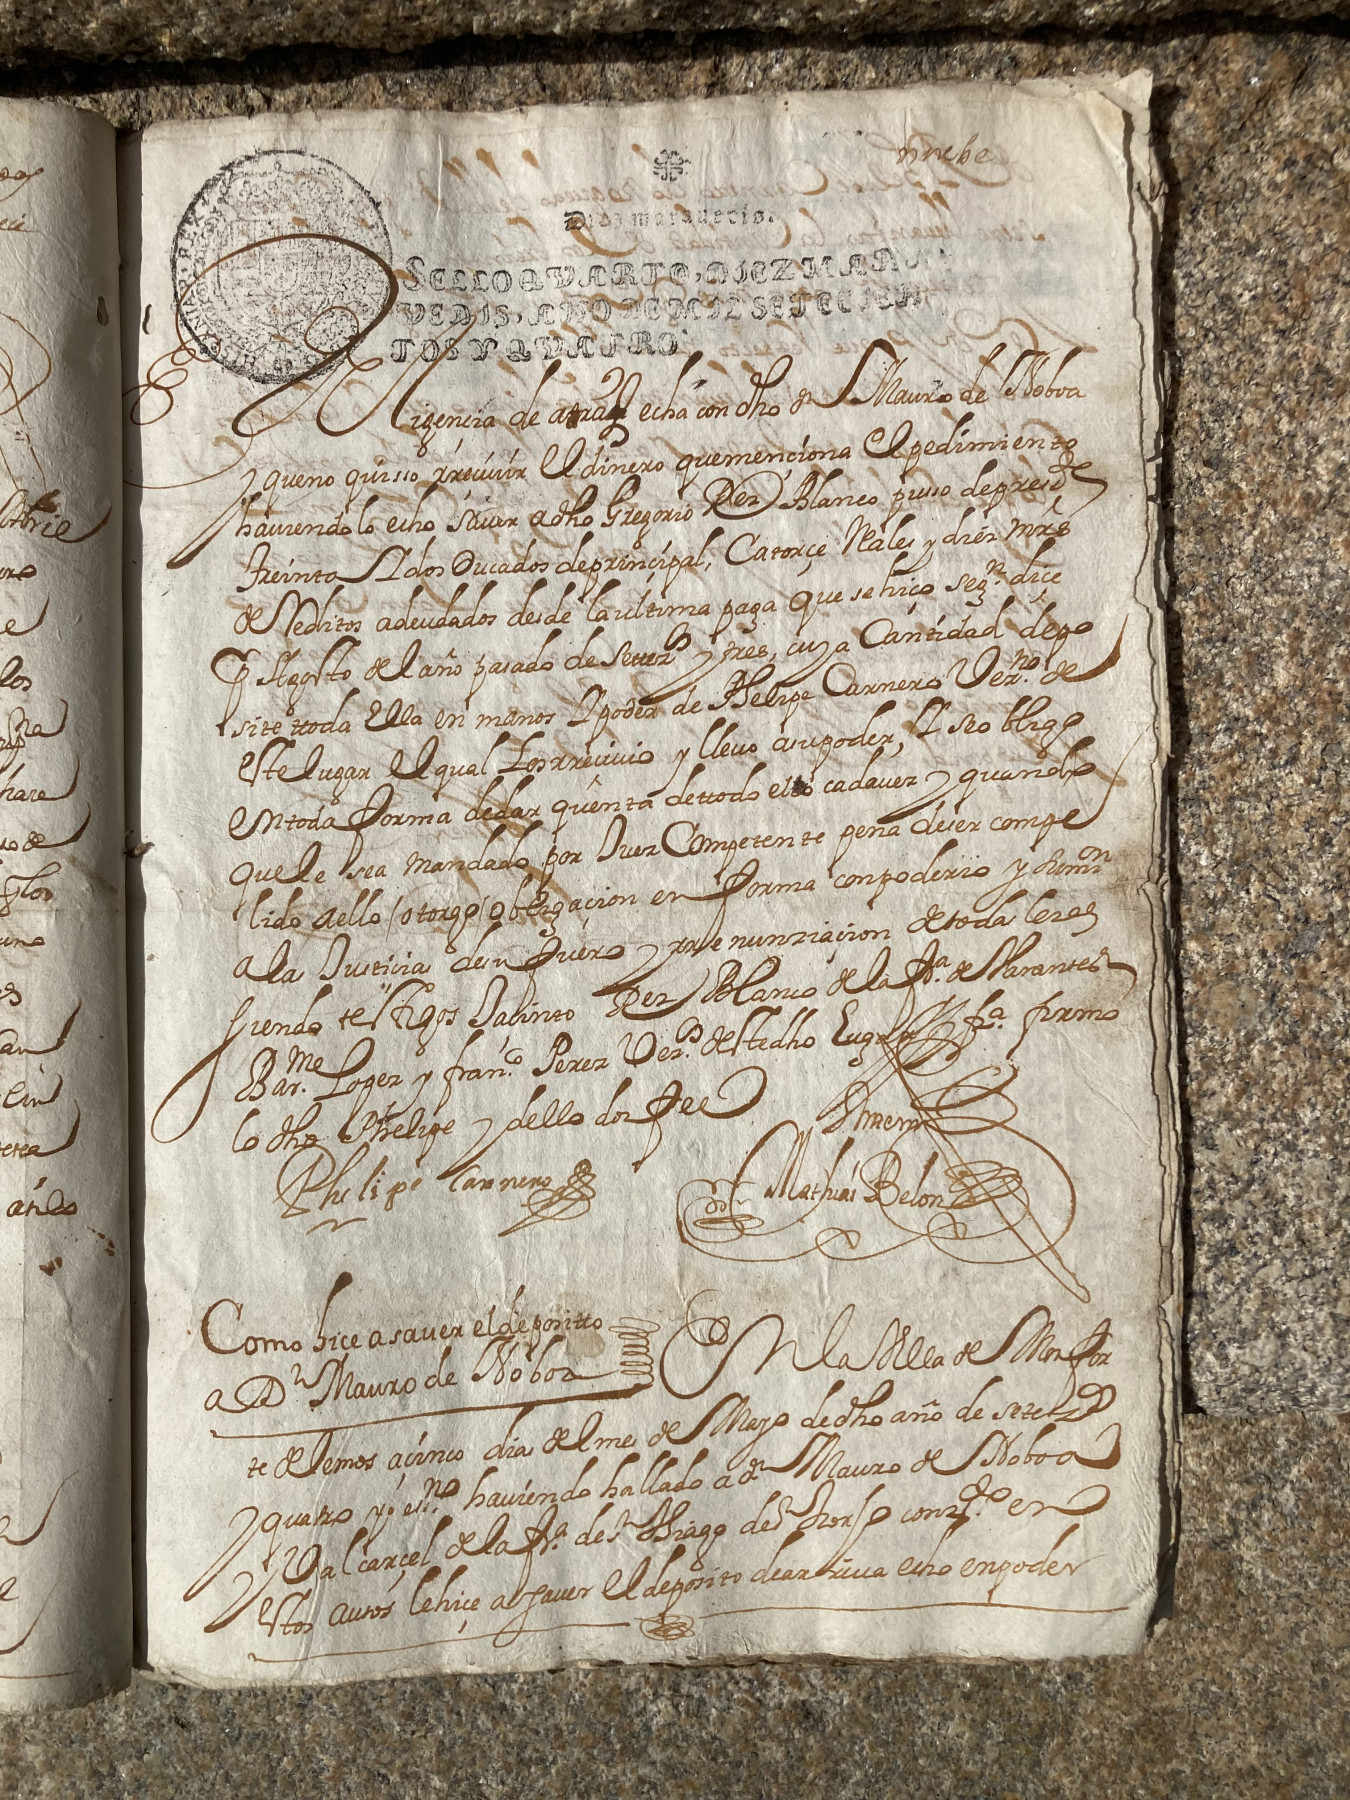 nuebe
Diez maravedis.
SELLO QVARTO, DIEZ MARA
VEDIS, AÑO DE MIL SETECIEN
TOS Y QVATRO.
ligencia de atras echa con dho dn Mauro de Noboa
y queno quisso rrecivir El dinero quemenciona El pedimiento
haviendolo echo saver a dho Gregorio Perz Blanco pusso depresste
treinta Y dos Ducados deprincipal, Catorce Rales y diez mrs
de Reditos adeudados desde la ultima paga que se hiço segn. dice
Agosto del año pasado de setezos y tres, cuya Cantidad depo
site ttoda Ella en manos Y poder de Phelipe Carnero Vezno. de
este lugar El qual Los rrecivio y llevo a su poder, Y se obligo
en toda forma de dar quenta de ttodo ello cada vez y quando
que le sea mandado por Juez Competente pena de ser compe
lido a ello / otorgo / obligacion en forma con poderio y somon
a las Justicias de su fuero y rrenunziacion de toda leies
siendo testigos Jacinto Perz Blanco de la fa. de Marantes
Barme. Lopez y frano. Perez Vezos. deste dho Lugar y fa. firmo
lo dho Phelipe y dello doi fee
Phelipe Carnero
Antemi
Mathias Belon
Como hiçe a saver el depositto
a Dn Mauro de Noboa
En la Villa de Monfor
te de Lemos a cinco dias del mes de Mayo de dho año de setezos
y quatro yo esno. haviendo hallado a dn Mauro de Noboa
Valcarçel de la fa. de sn Thiago de contdo. en
estos autos le hiçe a saver El deposito de arriva echo en poder